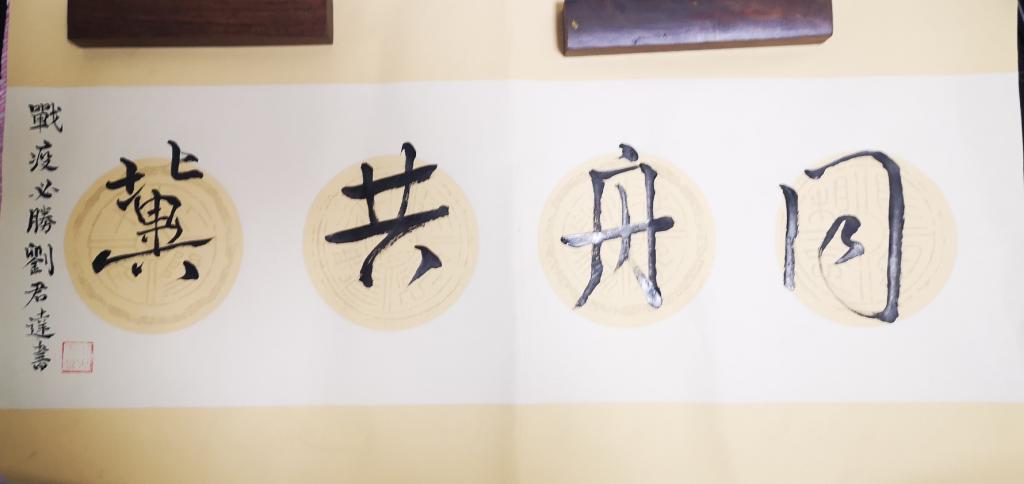 同舟共冀
戰疫必勝劉君達書